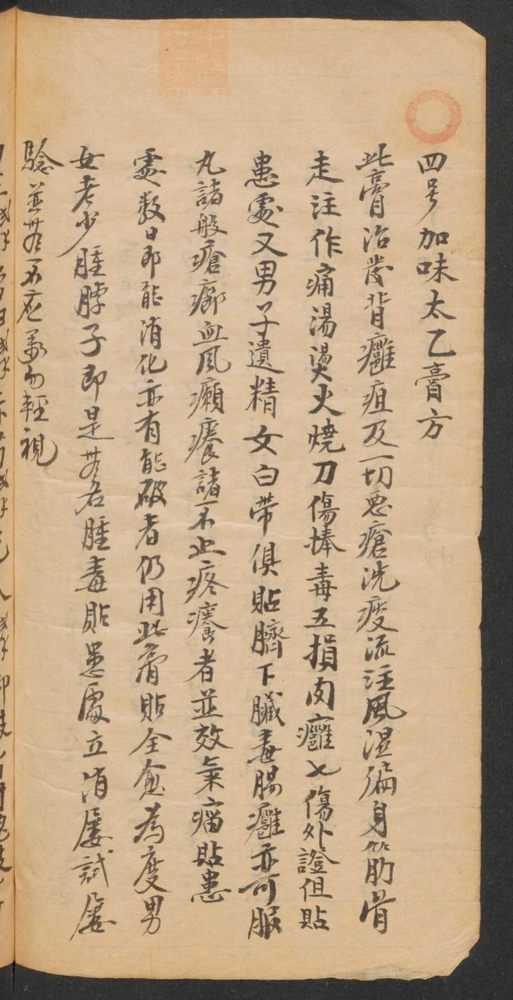 四号加味太乙膏方
此膏治發背癰疽及一切惡瘡洗痰流注風湿徧身筋骨
走注作痛湯燙火燒刀傷捧毒五損内癰七傷外證但貼
患處又男子遺精女白帶俱貼臍下臟毒腸癰亦可服
丸諸般瘡癤血風癩癢諸不止疼癢者並效氣痛貼患
處数日即能消化亦有能破者仍用此膏貼全愈為度男
女老少腫脖子即是無名腫毒貼患處立消屢試屢
驗並無不应萬勿輕視